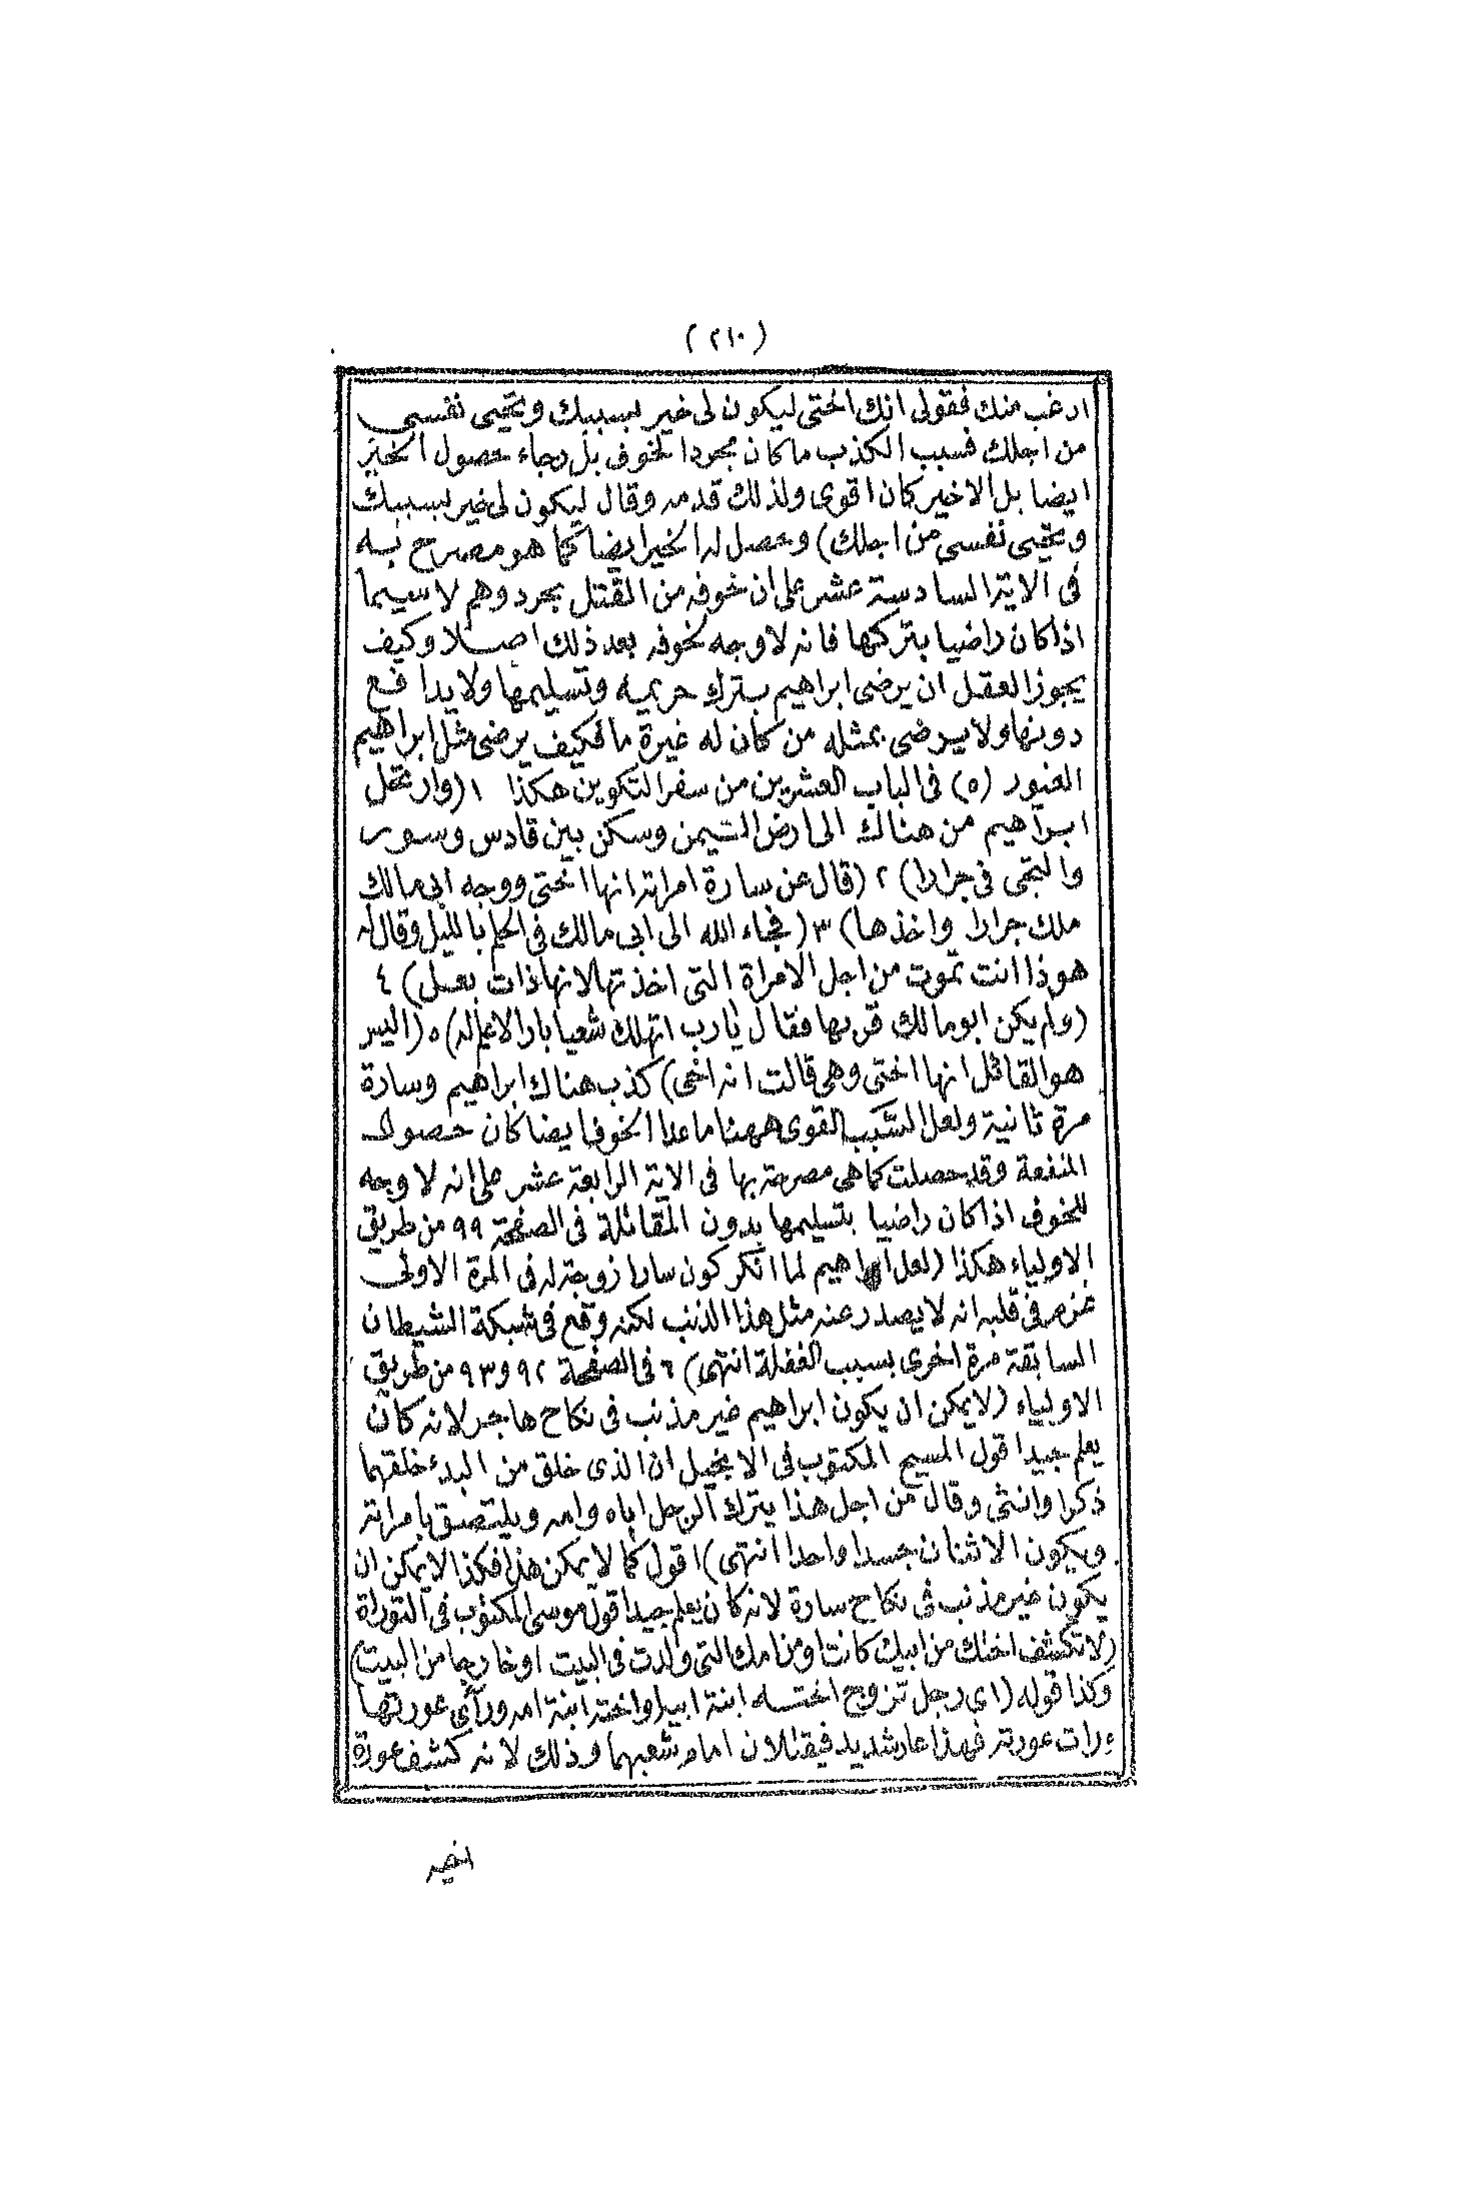 (٢١٠)
ارغب منك فقولى انك اختى ليكون لى خير بسببك وتحيى نفسى
من اجلك فسبب الكذب ما كان مجرد الخوف بل رجاء حصول الخير
ايضا بل الاخير كان اقوى ولذلك قدمه وقال ليكون لى خير بسببك
وتحيى نفسى من اجلك) وحصل له الخير ايضا كما هو مصرح به
فى الاية السادسة عشر على ان خوفه من القتل مجرد وهم لا سيما
اذا كان راضيا بتركها فانه لا وجه لخوفه بعد ذلك اصلا وكيف
يجوز العقل ان يرضى ابراهيم بترك حريمه وتسليمها ولا يدافع
دونها ولا يرضى بمثله من كان له غيرة ما فكيف يرضى مثل ابراهيم
الغيور (٥) فى الباب العشرين من سفر التكوين هكذا ١ (وارتحل
ابراهيم من هناك الى ارض التيمن وسكن بين قادس وسور
والتجى فى جرارا) ٢ (قال عن سارة امراته انها اختى ووجه ابى مالك
ملك جرارا واخذها) ٣ (فجاء الله الى ابى مالك فى الحلم بالليل وقال له
هوذا انت تموت من اجل الامراة التى اخذتها لانها ذات بعل) ٤
(ولم يكن ابو مالك قربها فقال يا رب اتهلك شعبا بارا لا علم له) ٥ (اليس
هو القائل انها اختى وهى قالت انه اخى) كذب هناك ابراهيم وسارة
مرة ثانية ولعل السبب القوى ههنا ما عدا الخوف ايضا كان حصول
المنفعة وقد حصلت كما هى مصرحة بها فى الاية الرابعة عشر على انه لا وجه
للخوف اذا كان راضيا بتسليمها بدون المقاتلة فى الصفحة ٩٩ من طريق
الاولياء هكذا (لعل ابراهيم لما انكر كون سارا زوجة له فى المرة الاولى
عزم فى قلبه انه لا يصدر عنه مثل هذا الذنب لكنه وقع فى شبكة الشيطان
السابقة مرة اخرى بسبب الغفلة انتهى) ٦ فى الصفحة ٩٢ و ٩٣ من طريق
الاولياء (لا يمكن ان يكون ابراهيم غير مذنب فى نكاح هاجر لانه كان
يعلم جيدا قول المسيح المكتوب فى الانجيل ان الذى خلق من البدء خلقهما
ذكرا وانثى وقال من اجل هذا يترك الرجل اباه وامه ويلتصق بامراته
ويكون الاثنان جسدا واحدا انتهى) اقول كما لا يمكن هذا فكذا لا يمكن ان
يكون غير مذنب فى نكاح سارة لانه كان يعلم جيدا قول موسى المكتوب فى التوراة
(لا تكشف اختك من ابيك كانت او من امك التى ولدت فى البيت او خارجا من البيت)
وكذا قوله (اى رجل تزوج اخته ابنة ابيه او اخته ابنة امه وراى عورتها
ورات عورته فهذا عار شديد فيقتلان امام شعبهما وذلك لانه كشف عورة
اخيه